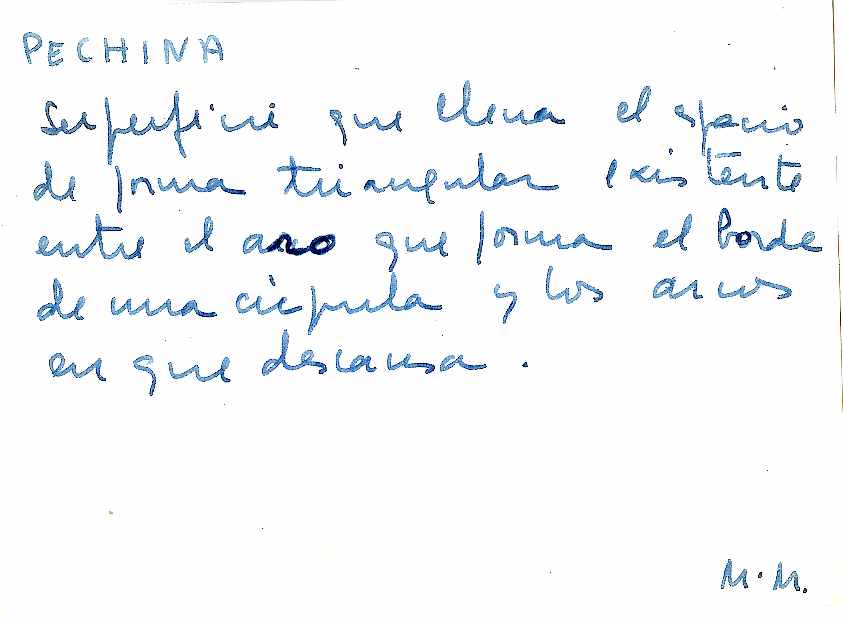 PECHINA
Superficie que llena el espacio
de forma triangular existente
entre el aro que forma el borde
de una cúpula y los arcos
en que descansa.
M.M.